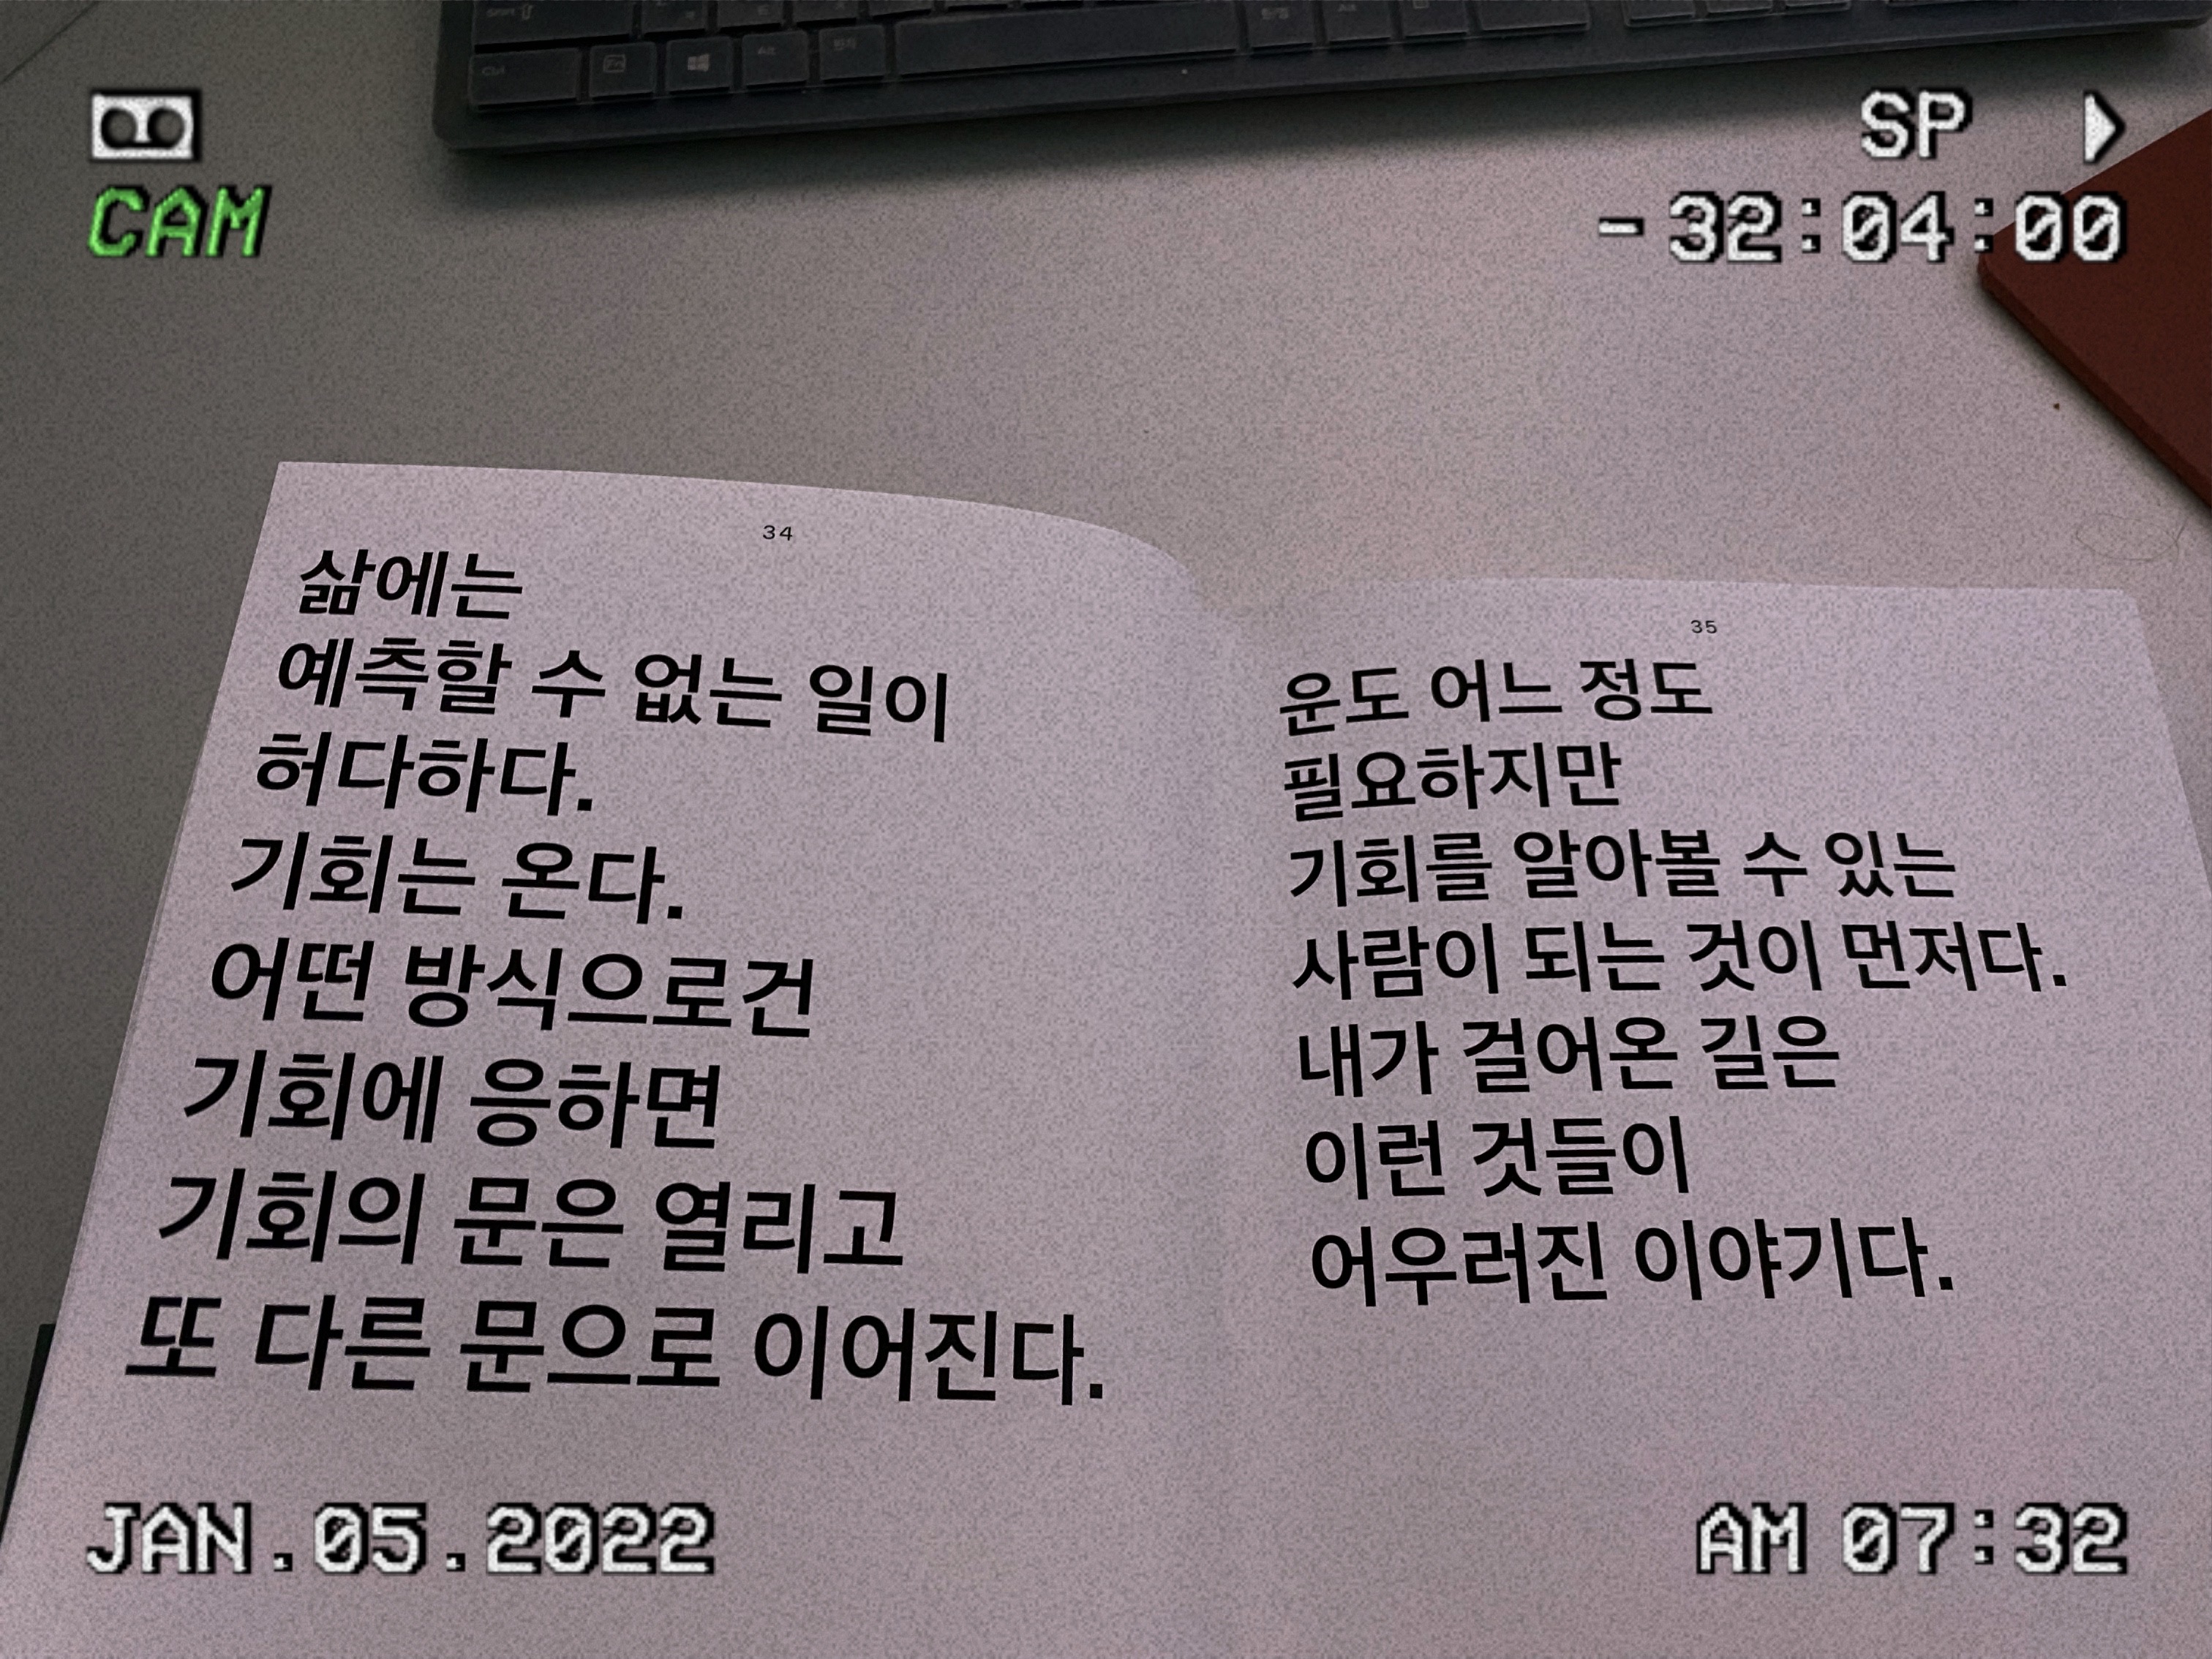 CAM
SP
-32:04:00
34
삶에는
예측할 수 없는 일이
허다하다.
기회는 온다.
어떤 방식으로건
기회에 응하면
기회의 문은 열리고
또 다른 문으로 이어진다.
35
운도 어느 정도
필요하지만
기회를 알아볼 수 있는
사람이 되는 것이 먼저다.
내가 걸어온 길은
이런 것들이
어우러진 이야기다.
JAN.05.2022
AM 07:32